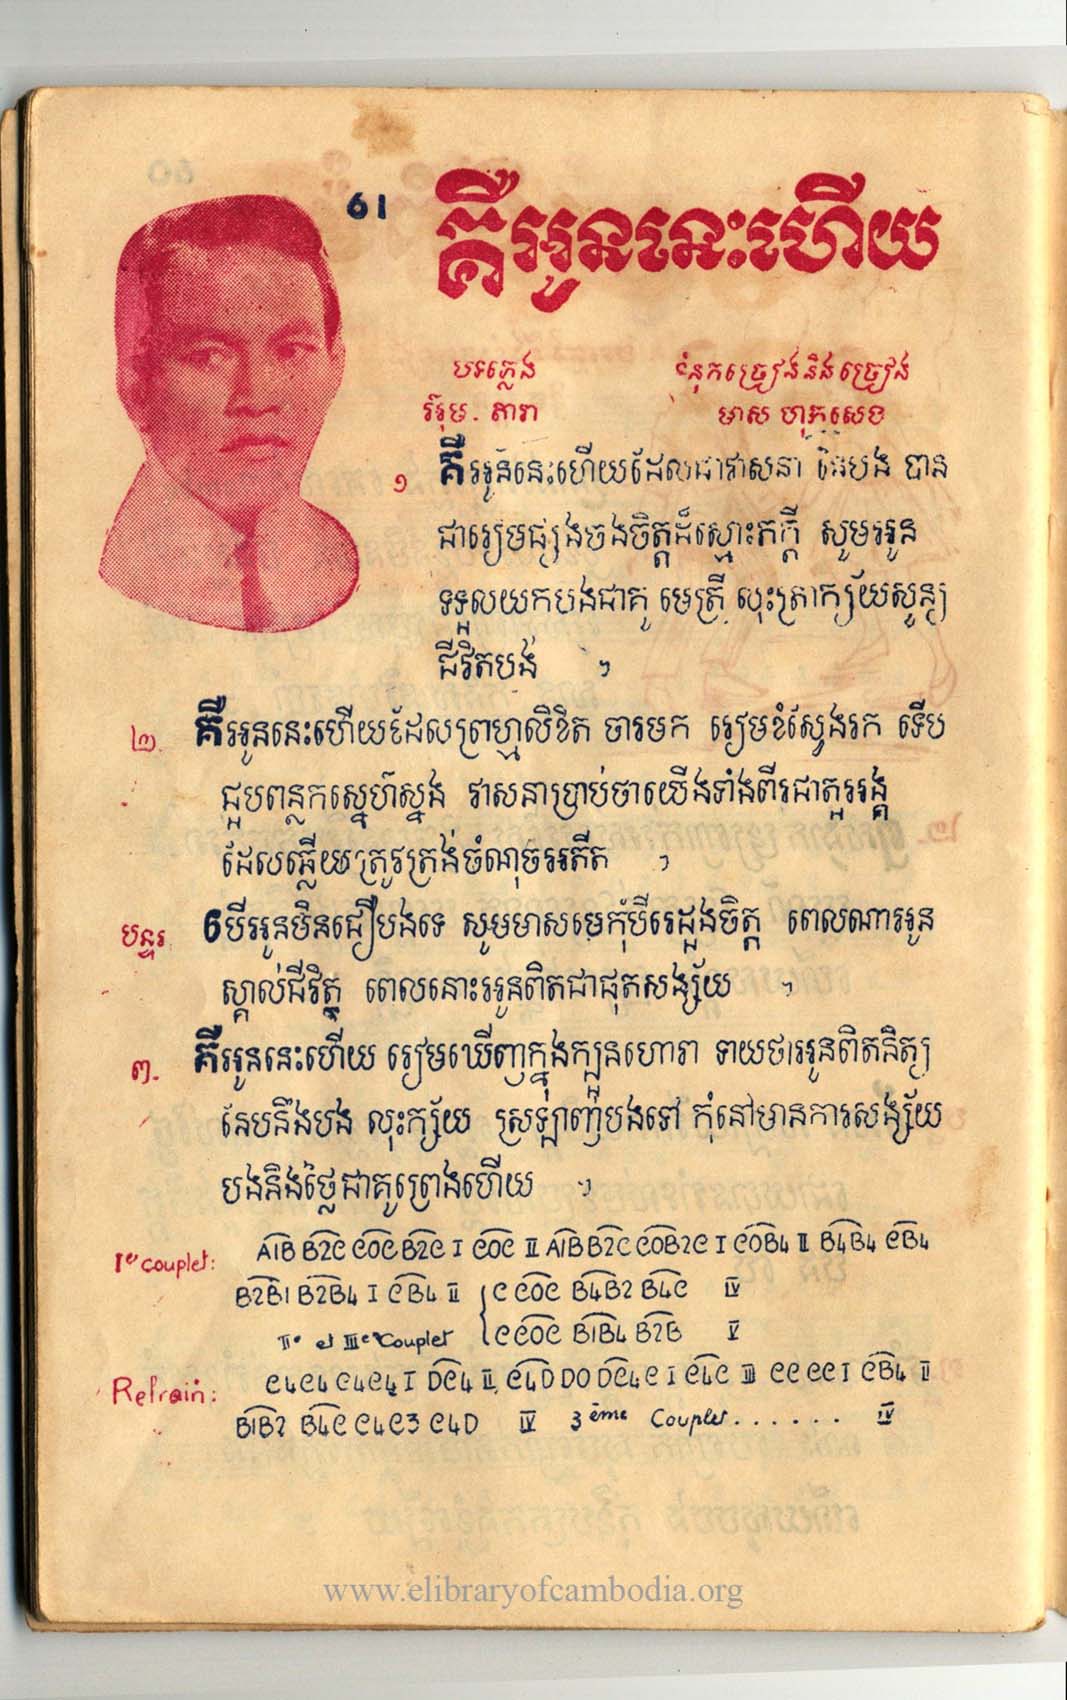 61
គឺអូននេះហើយ
បទភ្លេង
ទំនុកច្រៀងនិងច្រៀង
រ៉ុម . តារា
មាស ហុកសេង
១ គឺអូននេះហើយដែលជាវាសនា នៃបង បាន
ជារៀមផ្សងចងចិត្តដ៏ស្មោះភក្ដី សូមអូន
ទទួលយកបងជាគូ មេត្រី លុះត្រាក្ស័យសូន្យ
ជីវិតបង ។
២. គឺអូននេះហើយដែលព្រហ្មលិខិត ចារមក រៀមខំស្វែងរក ទើប
ជួបពន្លកស្នេហ៍ស្នង វាសនាប្រាប់ថាយើងទាំងពីរជាតួអង្គ
ដែលឆ្លើយត្រូវត្រង់ចំណុចអតីត ។
បន្ទរ បើអូនមិនជឿបងទេ សូមមាសមេកុំបីរដួងចិត្ត ពេលណាអូន
ស្គាល់ជីវិត ពេលនោះអូនពិតជាផុតសង្ស័យ ។
៣. គឺអូននេះហើយ រៀមឃើញក្នុងក្បួនហោរា ទាយថាអូនពិតនិត្យ
នែបនឹងបង លុះក្ស័យ ស្រឡាញ់បងទៅ កុំនៅមានការសង្ស័យ
បងនិងថ្លៃជាគូព្រេងហើយ ។
Ier couplet: A1B B2C COC B2C I COC II A1B B2C COB2C I COB4 II B4B4 CB4
B2B1 B2B4 I CB4 II C COC B4B2 B4C IV
IIe et IIIe Couplet C COC B1B4 B2B V
Refrain: C4C4 C4C4 I DC4 II C4D DO DC4C I C4C III CC CC I CB4 II
B1B2 B4C C4C3 C4D IV 3ème Couplet...... IV
www.elibraryofcambodia.org